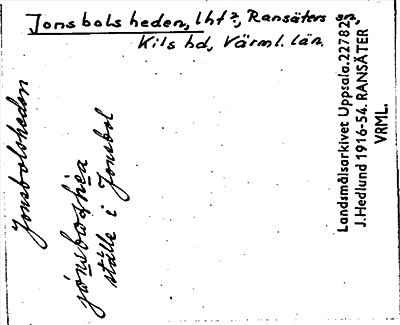 Jonsbolsheden, lht?, Ransäters sn,
Kils hd, Värml. län.
Jonsbolsheden
ställe i Jonsbol
Landsmålsarkivet Uppsala. 22782
J. Hedlund 1916-54. RANSÄTER
VRML.